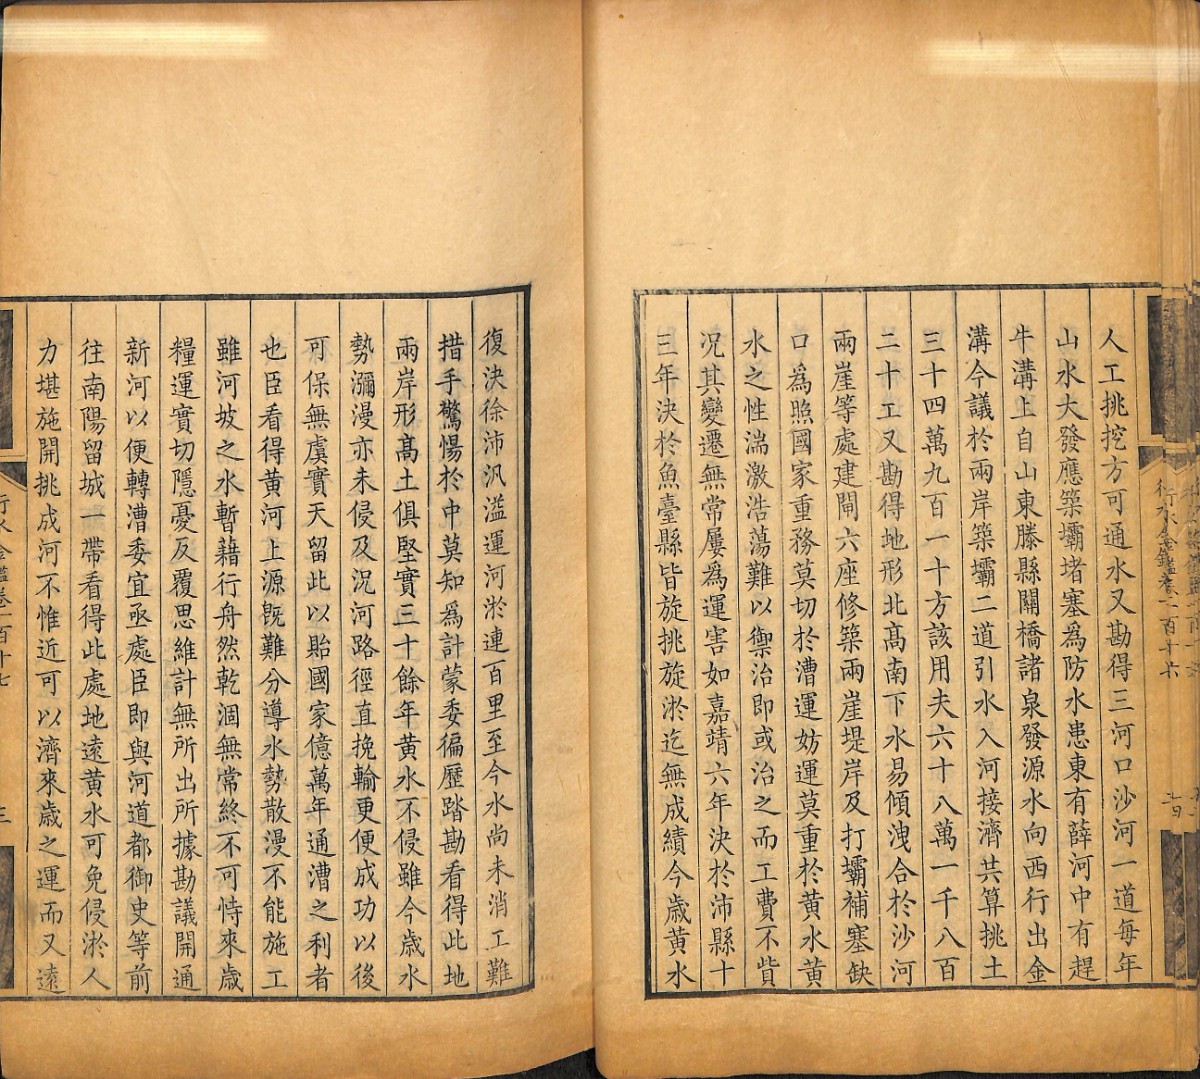 人工挑挖方可通水又勘得三河口沙河一道每年
山水大發應築壩堵塞為防水患東有薛河中有趕
牛溝上自山東滕縣關橋諸泉發源水向西行出金
溝今議於兩岸築壩二道引水入河接濟共算挑土
三十四萬九百一十方該用夫六十八萬一千八百
二十工又勘得地形北髙南下水易傾洩合於沙河
兩崖等處建閘六座修築兩崖堤岸及打壩補塞缺
口為照國家重務莫切於漕運妨運莫重於黄水黄
水之性湍激浩蕩難以禦治即或治之而工費不貲
况其變遷無常屢為運害如嘉靖六年決於沛縣十
三年決於魚臺縣皆旋挑旋淤迄無成績今歲黄水
復決徐沛汎溢運河淤連百里至今水尚未消工難
措手驚惕於中莫知為計蒙委徧歷踏勘看得此地
兩岸形髙土俱堅實三十餘年黄水不侵雖今歲水
勢瀰漫亦未侵及況河路徑直挽輸更便成功以後
可保無虞實天留此以貽國家億萬年通漕之利者
也臣看得黄河上源既難分導水勢散漫不能施工
雖河坡之水暫藉行舟然乾涸無常終不可恃來歲
糧運實切隱憂反覆思維計無所出所據勘議開通
新河以便轉漕委宜亟處臣即與河道都御史等前
往南陽留城一帶看得此處地遠黄水可免侵淤人
力堪施開挑成河不惟近可以濟來歲之運而又遠
行水金鑑卷一百十七
三